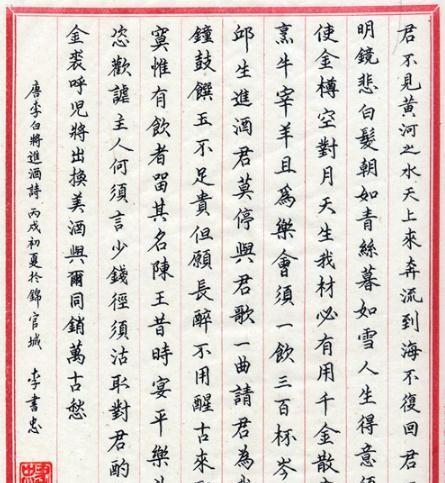 君不見黃河之水天上來奔流到海不復回君
明鏡悲白髮朝如青絲暮如雪人生得意須
使金樽空對月天生我材必有用千金散
烹牛宰羊且為樂會須一飲三百杯岑
邱生進酒君莫停與君歌一曲請君為
鐘鼓饌玉不足貴但願長醉不用醒古來
寞惟有飲者留其名陳王昔時宴平樂
恣歡謔主人何須言少錢徑須沽取對君酌
金裘呼児將出換美酒與爾同銷萬古愁
唐李白將進酒詩丙戌初夏於錦官城 李書忠